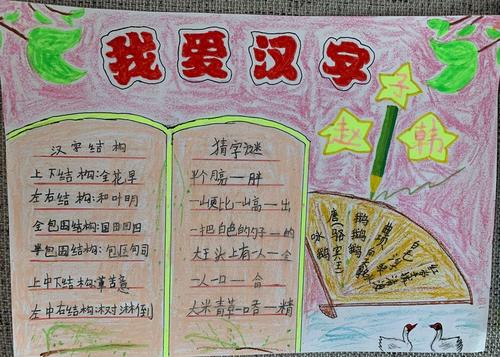 我爱汉字
子
赵
韩
汉字结构
上下结构:金花早
左右结构:和叶明
全包围结构:国田回四
半包围结构:包医句司
上中下结构:
左中右结构:冰对淋倒
猜字谜
半个月亮一胖
一山更比一山高一出
一把白色的勺子一的
大王头上有一人一全
一人一口一合
大米青草一口香一精
咏鹅
唐骆宾王
鹅鹅鹅
曲项向天歌
白毛浮绿水
红掌拨清波